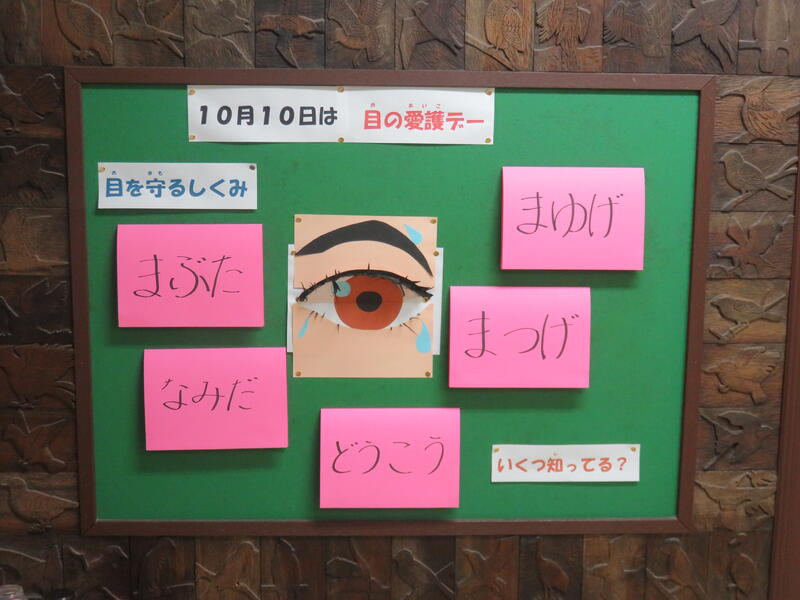 10月10日は 目の愛護デー
目を守るしくみ
まゆげ
まぶた
まつげ
なみだ
どうこう
いくつ知ってる？